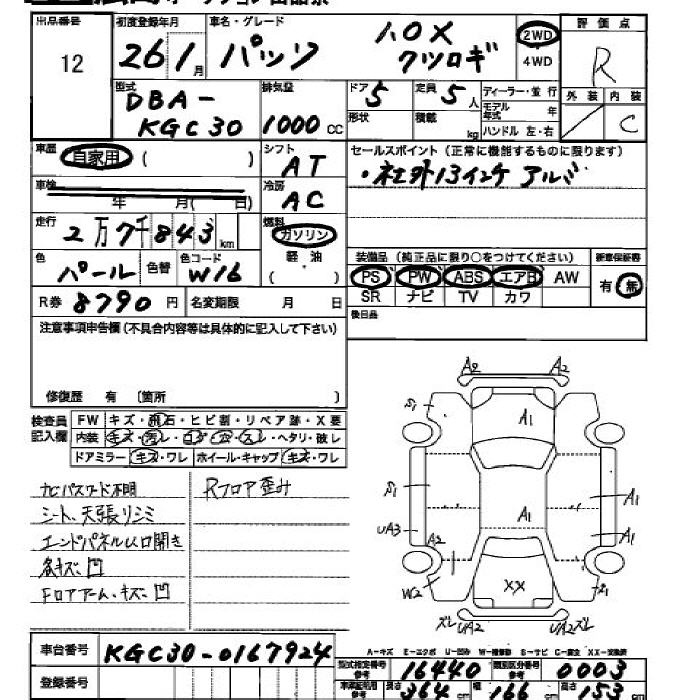 出品番号
12
初度登録年月
26 1月
車名・グレード
パッソ 1.0X
クツロギ
2WD
4WD
評価点
R
外装 内装
C
型式
DBA-
KGC30
排気量
1000cc
ドア 5
形状
定員 5人
積載 kg
ディーラー・並行
モデル年式 年
ハンドル 左・右
車歴
自家用 ( )
シフト
AT
車検
年 月( 日)
冷房
AC
セールスポイント (正常に機能するものに限ります)
・社外13インチ アルミ
走行
2万7千843km
燃料
ガソリン
軽油
( )
色
パール
色替
色コード
W16
装備品 (純正品に限り○をつけてください)
PS PW ABS エアB AW
SR ナビ TV カワ
新車保証書
有・無
R券 8790円
名変期限 月 日
後日品
注意事項申告欄 (不具合内容等は具体的に記入して下さい)
修復歴 有 〔箇所 〕
検査員記入欄
FW キズ・飛石・ヒビ割・リペア跡・X要
内装 ヘタリ・破レ
ドアミラー キズ・ワレ ホイール・キャップ キズ・ワレ
ナビパスワード不明
シート、天張りシミ
エンドパネル 開き
Rフロア歪み
A2 A2
S1 A1
S1 A1
UA3 A1 A1
A2
W2 XX
ズレ UA2 UA2 ズレ
A-キズ E-エクボ U-凹み W-補修跡 S-サビ C-腐食 XX-交換済
車台番号 KGC30-0167924
登録番号
型式指定番号 参考 16440
類別区分番号 参考 0003
364cm 幅 166cm 高さ 153cm